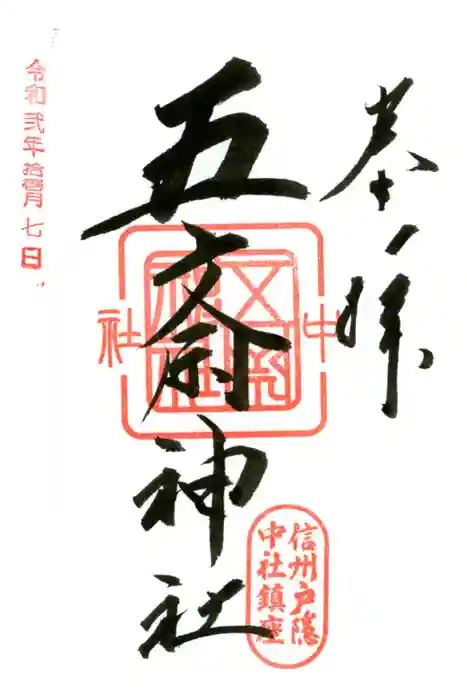 奉拝
五斎神社
中社
信州戸隠
中社鎮座
令和弐年拾壹月七日